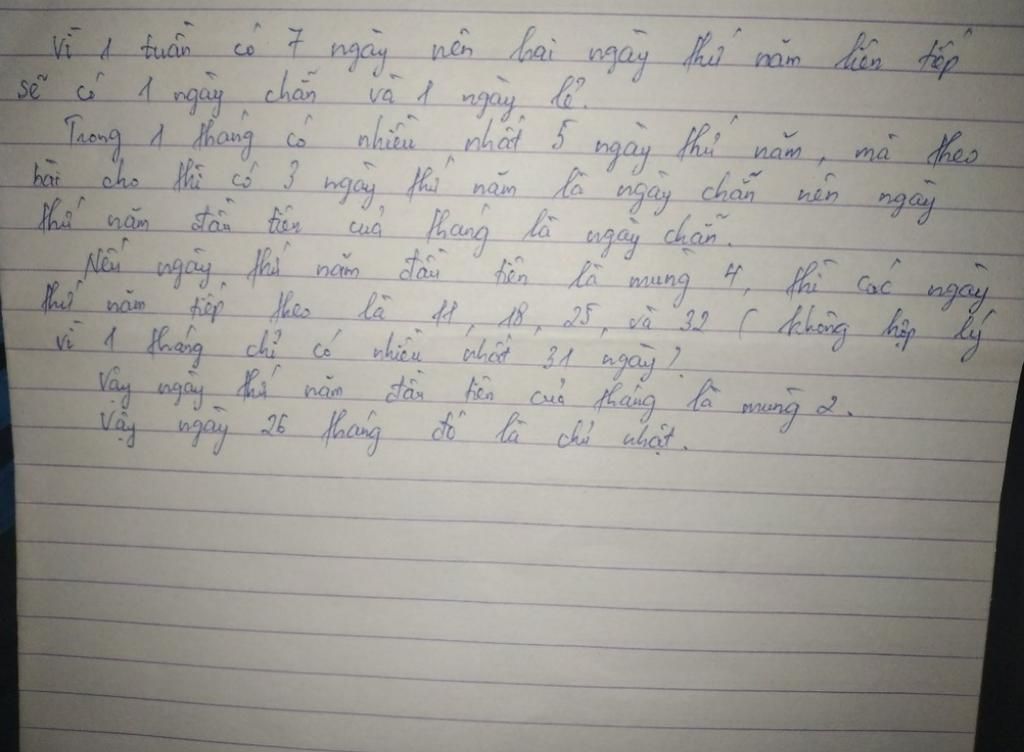 Vì 1 tuần có 7 ngày nên hai ngày thứ năm liên tiếp
sẽ có 1 ngày chẵn và 1 ngày lẻ.
Trong 1 tháng có nhiều nhất 5 ngày thứ năm, mà theo
bài cho thì có 3 ngày thứ năm là ngày chẵn nên ngày
thứ năm đầu tiên của tháng là ngày chẵn.
Nếu ngày thứ năm đầu tiên là mùng 4, thì các ngày
thứ năm tiếp theo là 11, 18, 25, và 32 ( không hợp lý
vì 1 tháng chỉ có nhiều nhất 31 ngày).
Vậy ngày thứ năm đầu tiên của tháng là mùng 2.
Vậy ngày 26 tháng đó là chủ nhật.